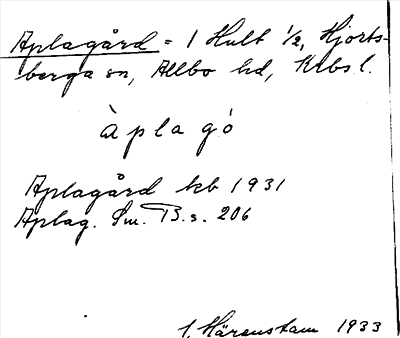 Aplagård = 1 Hult 1/2, Hjorts-
berga sn, Allbo hd, Krbs l.
àplagó
Aplagård kb 1931
Aplag. Sm. B. s. 206
Härenstam 1933